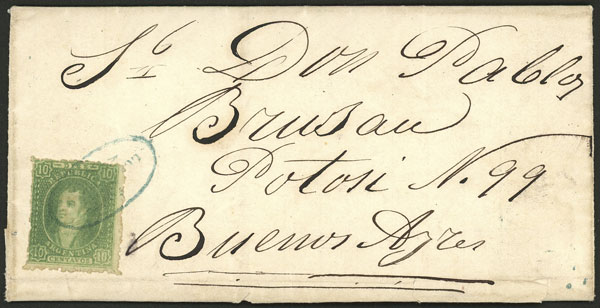 Sr Don Pablo
Brusau
Potosi N. 99
Buenos Ayres
10 10
REPUBLICA
ARGENTINA
10 10
CENTAVOS